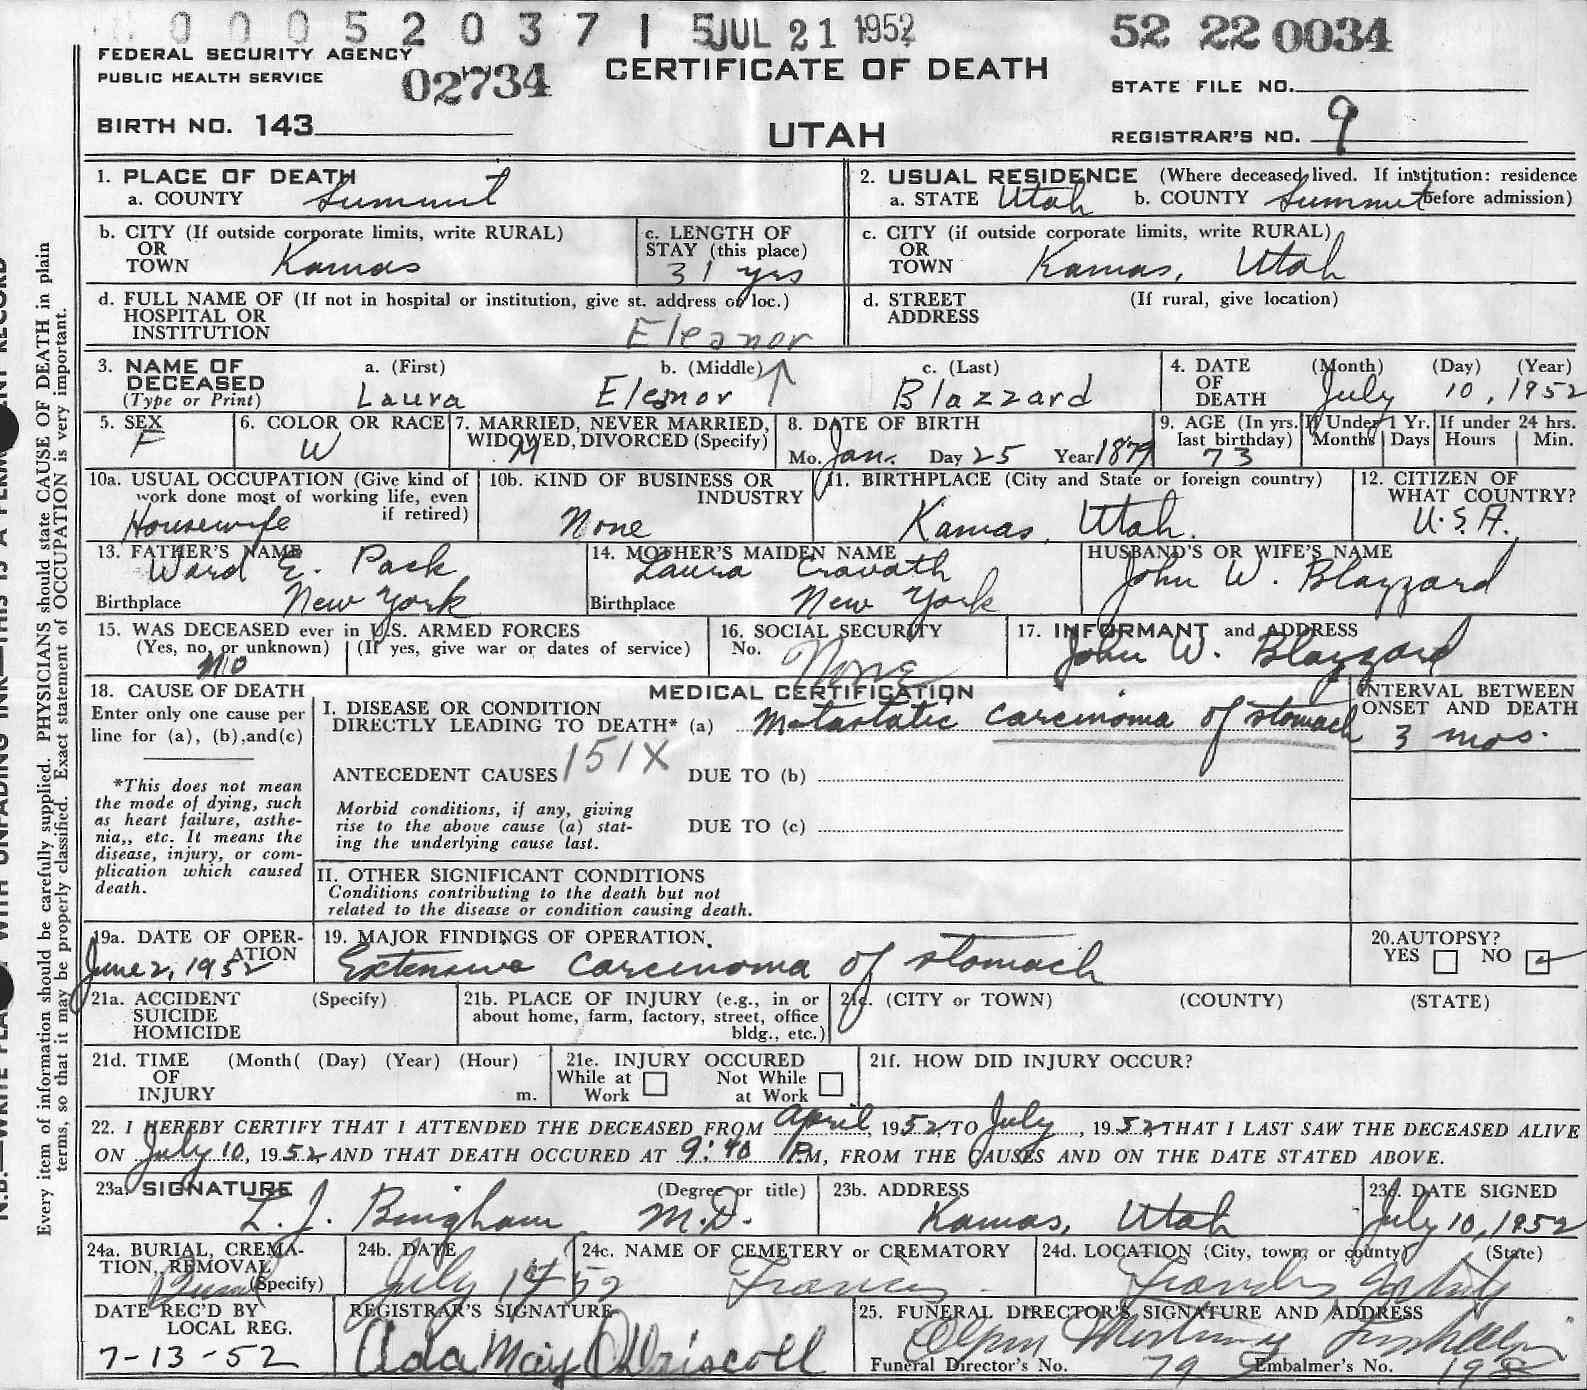 00052037 1 5JUL 21 1952 52 22 0034
FEDERAL SECURITY AGENCY
PUBLIC HEALTH SERVICE 02734 CERTIFICATE OF DEATH STATE FILE NO.
BIRTH NO. 143 UTAH REGISTRAR'S NO. 9
1. PLACE OF DEATH
a. COUNTY Summit
2. USUAL RESIDENCE (Where deceased lived. If institution: residence before admission)
a. STATE Utah b. COUNTY Summit
b. CITY (If outside corporate limits, write RURAL)
OR
TOWN Kamas
c. LENGTH OF
STAY (this place)
31 yrs
c. CITY (if outside corporate limits, write RURAL)
OR
TOWN Kamas, Utah
d. FULL NAME OF (If not in hospital or institution, give st. address or loc.)
HOSPITAL OR
INSTITUTION
Eleanor
d. STREET (If rural, give location)
ADDRESS
3. NAME OF
DECEASED
(Type or Print)
a. (First) b. (Middle) c. (Last)
Laura Elenor Blazzard
4. DATE (Month) (Day) (Year)
OF
DEATH July 10, 1952
5. SEX
F
6. COLOR OR RACE
W
7. MARRIED, NEVER MARRIED,
WIDOWED, DIVORCED (Specify)
M
8. DATE OF BIRTH
Mo. Jan. Day 25 Year 1879
9. AGE (In yrs.
last birthday)
73
If Under 1 Yr.
Months Days
If under 24 hrs.
Hours Min.
10a. USUAL OCCUPATION (Give kind of
work done most of working life, even
if retired)
Housewife
10b. KIND OF BUSINESS OR
INDUSTRY
None
11. BIRTHPLACE (City and State or foreign country)
Kamas, Utah.
12. CITIZEN OF
WHAT COUNTRY?
U.S.A.
13. FATHER'S NAME
Ward E. Pack
Birthplace New York
14. MOTHER'S MAIDEN NAME
Laura Cravath
Birthplace New York
HUSBAND'S OR WIFE'S NAME
John W. Blazzard
15. WAS DECEASED ever in U.S. ARMED FORCES
(Yes, no, or unknown) (If yes, give war or dates of service)
No
16. SOCIAL SECURITY
No.
None
17. INFORMANT and ADDRESS
John W. Blazzard
18. CAUSE OF DEATH
Enter only one cause per
line for (a), (b), and (c)
*This does not mean
the mode of dying, such
as heart failure, asthe-
nia,, etc. It means the
disease, injury, or com-
plication which caused
death.
MEDICAL CERTIFICATION
I. DISEASE OR CONDITION
DIRECTLY LEADING TO DEATH* (a) Metastatic carcinoma of stomach
INTERVAL BETWEEN
ONSET AND DEATH
3 mos.
ANTECEDENT CAUSES 151X DUE TO (b)
Morbid conditions, if any, giving
rise to the above cause (a) stat-
ing the underlying cause last.
DUE TO (c)
II. OTHER SIGNIFICANT CONDITIONS
Conditions contributing to the death but not
related to the disease or condition causing death.
19a. DATE OF OPER-
ATION
June 2, 1952
19. MAJOR FINDINGS OF OPERATION.
Extensive carcinoma of stomach
20. AUTOPSY?
YES NO
21a. ACCIDENT (Specify)
SUICIDE
HOMICIDE
21b. PLACE OF INJURY (e.g., in or
about home, farm, factory, street, office
bldg., etc.)
21c. (CITY or TOWN) (COUNTY) (STATE)
21d. TIME (Month( (Day) (Year) (Hour)
OF
INJURY m.
21e. INJURY OCCURED
While at Work Not While at Work
21f. HOW DID INJURY OCCUR?
22. I HEREBY CERTIFY THAT I ATTENDED THE DECEASED FROM April, 1952, TO July, 1952, THAT I LAST SAW THE DECEASED ALIVE
ON July 10, 1952 AND THAT DEATH OCCURED AT 9:40 P.M, FROM THE CAUSES AND ON THE DATE STATED ABOVE.
23a. SIGNATURE (Degree or title)
L. J. Bingham M.D.
23b. ADDRESS
Kamas, Utah
23c. DATE SIGNED
July 10, 1952
24a. BURIAL, CREMA-
TION, REMOVAL
(Specify)
Burial
24b. DATE
July 14 52
24c. NAME OF CEMETERY or CREMATORY
Francis
24d. LOCATION (City, town, or county) (State)
Francis
DATE REC'D BY
LOCAL REG.
7-13-52
REGISTRAR'S SIGNATURE
Ada May O'Driscoll
25. FUNERAL DIRECTOR'S SIGNATURE AND ADDRESS
Funeral Director's No. 79 Embalmer's No.
Every item of information should be carefully supplied. PHYSICIANS should state CAUSE OF DEATH in plain
terms, so that it may be properly classified. Exact statement of OCCUPATION is very important.